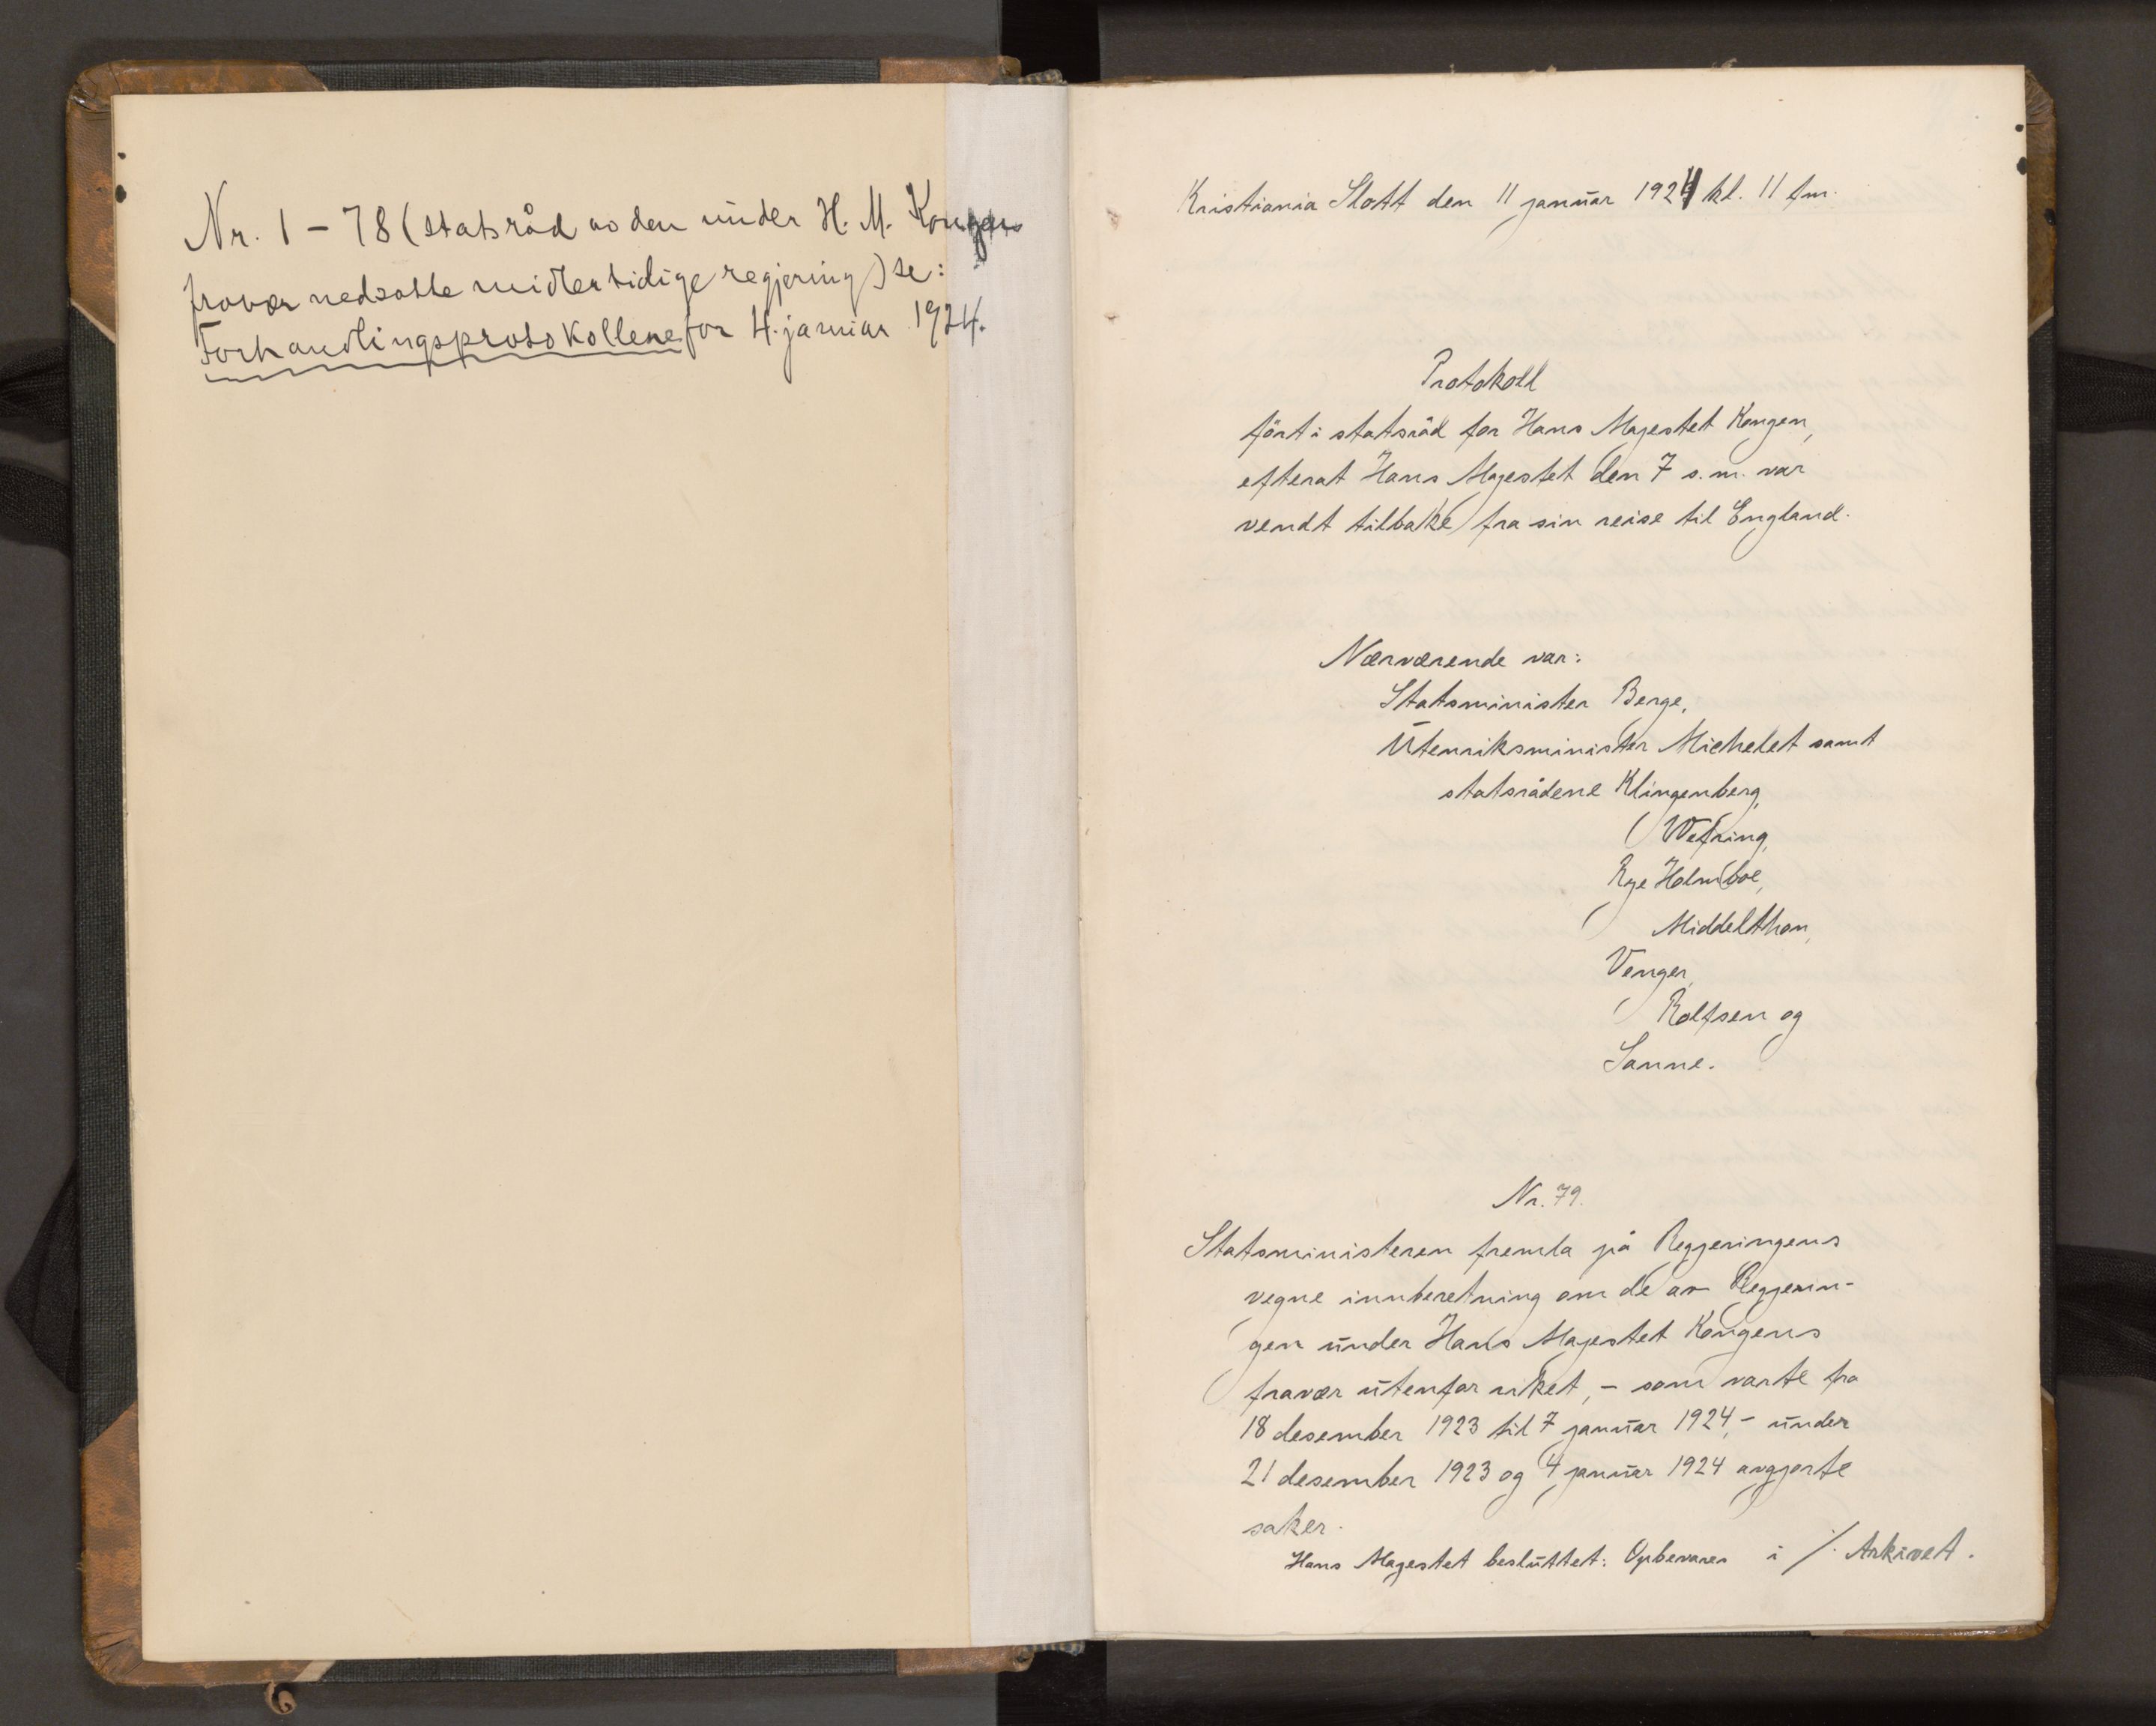 Nr. 1 - 78 (statsråd av den under H. M. Kongens
fravær nedsatte midlertidige regjering) se:
Forhandlingsprotokollene for 4. januar 1924.
Kristiania Slott den 11 januar 1924 kl. 11 fm.
Protokoll
fört i statsråd for Hans Majestet Kongen,
efterat Hans Majestet den 7 s. m. var
vendt tilbake fra sin reise til England.
Nærværende var:
Statsminister Berge,
Utenriksminister Michelet samt
statsrådene Klingenberg,
Wefring,
Rye Holmboe,
Middelthon,
Venger,
Rolfsen og
Sanne.
Nr. 79.
Statsministeren fremla på Regjeringens
vegne innberetning om de av Regjerin-
gen under Hans Majestet Kongens
fravær utenfor riket, - som varte fra
18 desember 1923 til 7 januar 1924, - under
21 desember 1923 og 4 januar 1924 avgjorte
saker.
Hans Majestet besluttet: Opbevares i ./. Arkivet.